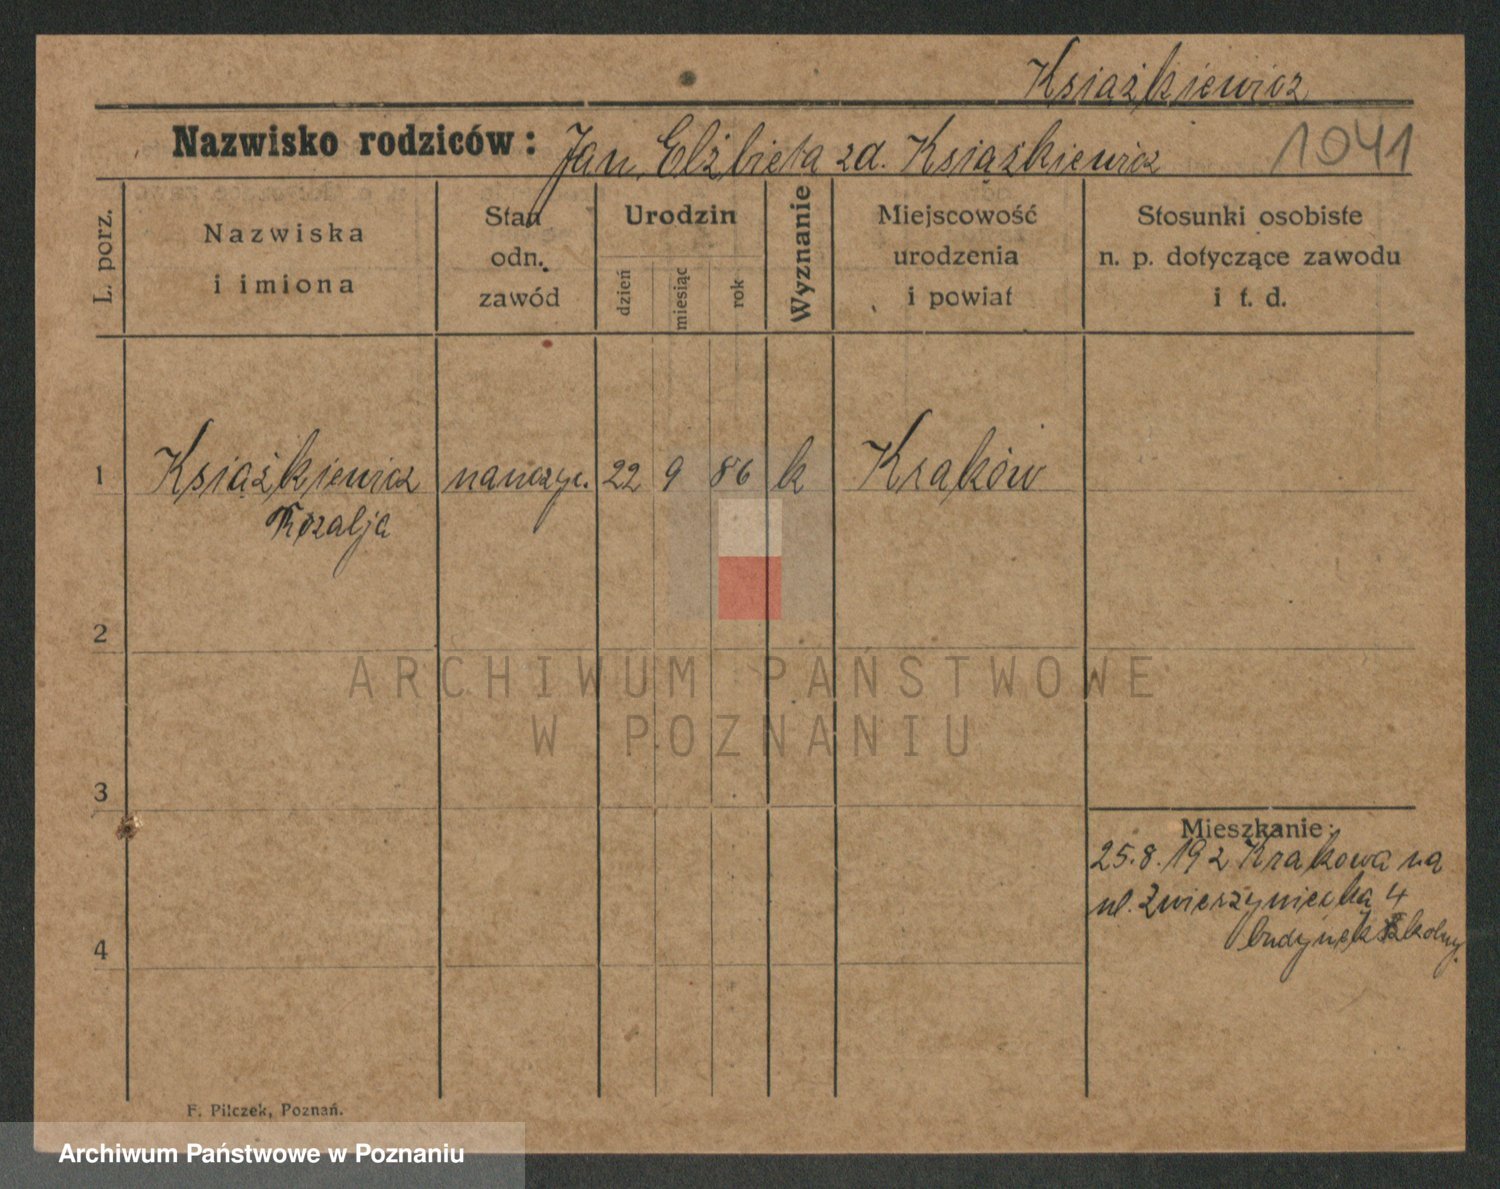 Książkiewicz
Nazwisko rodziców: Jan, Elżbieta zd. Książkiewicz 1041
L. porz.
Nazwiska
i imiona
Stan
odn.
zawód
Urodzin
dzień
miesiąc
rok
Wyznanie
Miejscowość
urodzenia
i powiat
Stosunki osobiste
n. p. dotyczące zawodu
i t. d.
1 Książkiewicz nauczyc. 22 9 86 k Kraków
Rozalja
2
ARCHIWUM PAŃSTWOWE
W POZNANIU
3
Mieszkanie:
25.8.19 z Krakowa na
ul. Zwierzyniecka 4
budynek szkolny.
4
F. Pilczek, Poznań.
Archiwum Państwowe w Poznaniu